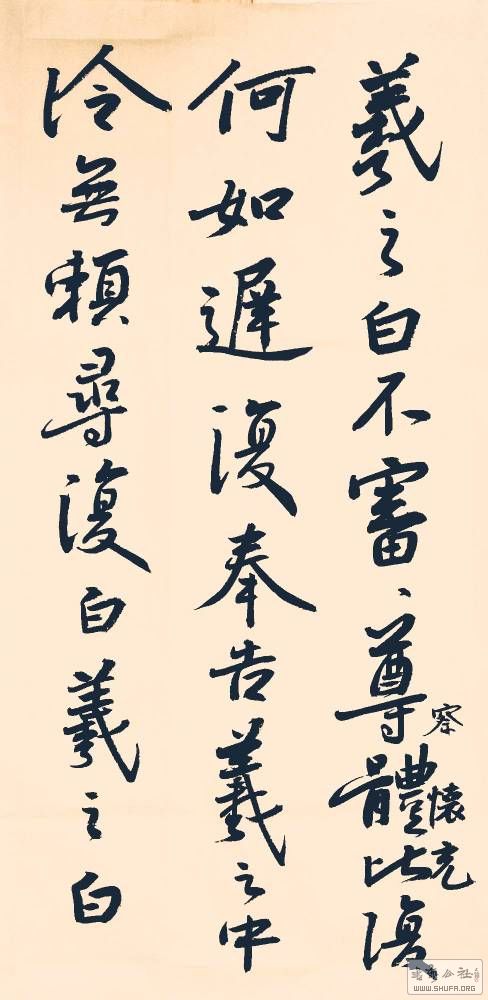 羲之白不審〻尊體比復
察懷充
何如遲復奉告羲之中
冷無賴尋復白羲之白
書法公社
WWW.SHUFA.ORG